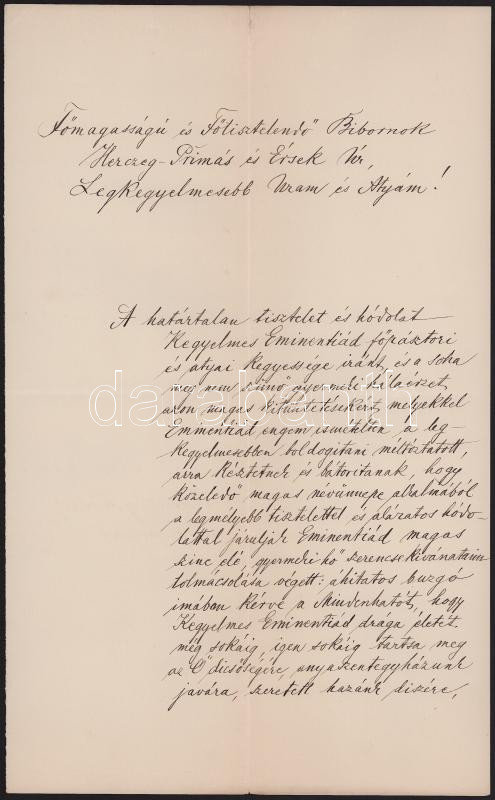 Főmagasságú és Főtisztelendő Bibornok
Herczeg-Primás és Érsek Úr,
Legkegyelmesebb Uram és Atyám!
A határtalan tisztelet és hódolat
Kegyelmes Eminentiád főpásztori
és atyai kegyessége iránt, és a soha
meg nem szünő gyermeki hálaérzet
azon magas kitüntetésekért, melyekkel
Eminentiád engem ismételten a leg-
kegyelmesebben boldogitani méltóztatott,
arra késztetnek és bátoritanak, hogy
közeledő magas névünnepe alkalmából
a legmélyebb tisztelettel és alázatos hódo-
lattal járuljak Eminentiád magas
szine elé, gyermeki hő szerencsekivánataim
tolmácsolása végett: áhitatos buzgó
imában kérve a Mindenhatót, hogy
Kegyelmes Eminentiád drága életét
még sokáig, igen sokáig tartsa meg
az Ő dicsőségére, anyaszentegyházunk
javára, szeretett hazánk diszére,
darabanth